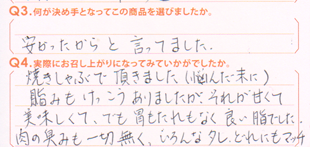 Q3.何が決め手となってこの商品を選びましたか。
安かったからと言ってました.
Q4.実際にお召し上がりになってみていかがでしたか。
焼きしゃぶで頂きました(悩んだ末に)
脂みもけっこうありましたが、それが甘くて
美味しくて、ても胃もたれもなく良い脂でした.
肉の臭みも一切無く、いろんなタレ、どれにもマッチ